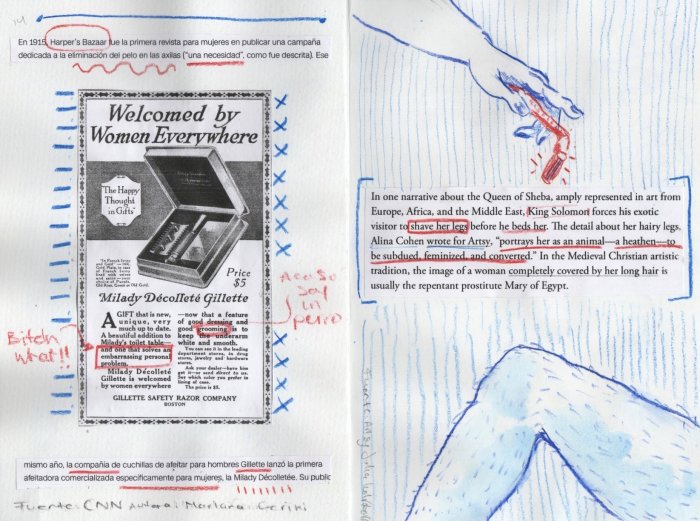 14
En 1915, Harper's Bazaar fue la primera revista para mujeres en publicar una campaña
dedicada a la eliminación del pelo en las axilas ("una necesidad", como fue descrita). Ese
Welcomed by
Women Everywhere
The Happy
Thought
in Gifts
Price
$5
Milady Décolleté Gillette
A GIFT that is new,
unique, very
much up to date.
A beautiful addition to
Milady's toilet table—
and one that solves an
embarrassing personal
problem.
Milady Décolleté
Gillette is welcomed
by women everywhere
—now that a feature
of good dressing and
good grooming is to
keep the underarm
white and smooth.
You can see it in the leading
department stores, in drug
stores, jewelry and hardware
stores.
Ask your dealer—have him
get it—or send direct to us.
Say which color you prefer in
lining of case.
The price is $5.
GILLETTE SAFETY RAZOR COMPANY
BOSTON
Bitch
what!!
Acaso
soy un
perro
mismo año, la compañía de cuchillas de afeitar para hombres Gillette lanzó la primera
afeitadora comercializada específicamente para mujeres, la Milady Décolletée. Su public
Fuente: CNN Autora: Marianna Cerini
In one narrative about the Queen of Sheba, amply represented in art from
Europe, Africa, and the Middle East, King Solomon forces his exotic
visitor to shave her legs before he beds her. The detail about her hairy legs.
Alina Cohen wrote for Artsy, "portrays her as an animal—a heathen—to
be subdued, feminized, and converted." In the Medieval Christian artistic
tradition, the image of a woman completely covered by her long hair is
usually the repentant prostitute Mary of Egypt.
Fuente: Artsy